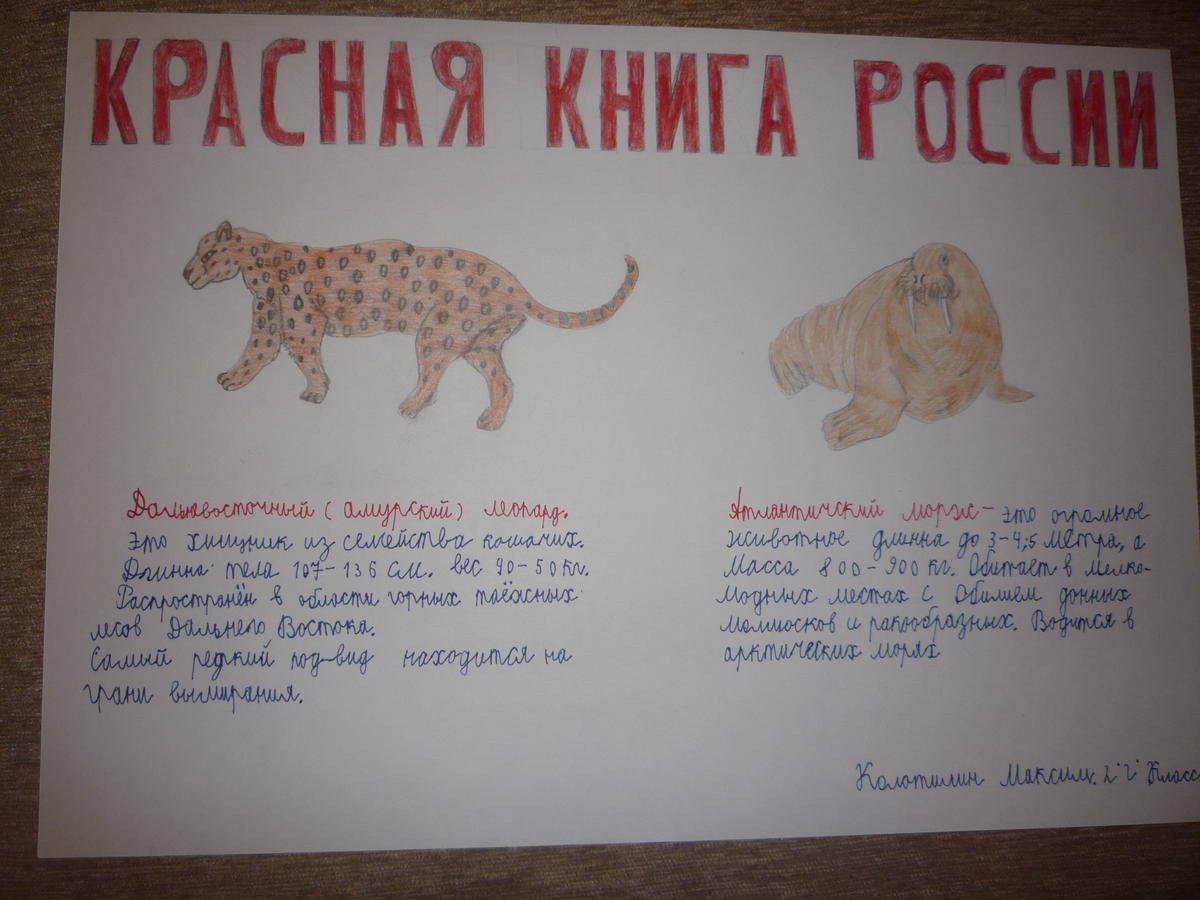 КРАСНАЯ КНИГА РОССИИ
Дальневосточный (амурский) леопард.
Это хищник из семейства кошачих.
Длинна тела 107-136 см. вес 40-50 кг.
Распространён в области горных таёжных
лесов Дальнего Востока.
Самый редкий под-вид находится на
грани вымирания.
Атлантический морж - это огромное
животное длинна до 3-4,5 метра, а
Масса 800-900 кг. Обитает в мелко-
водных местах с обилием донных
моллюсков и ракообразных. Водится в
арктических морях
Колотилин Максим. 2"г" Класс